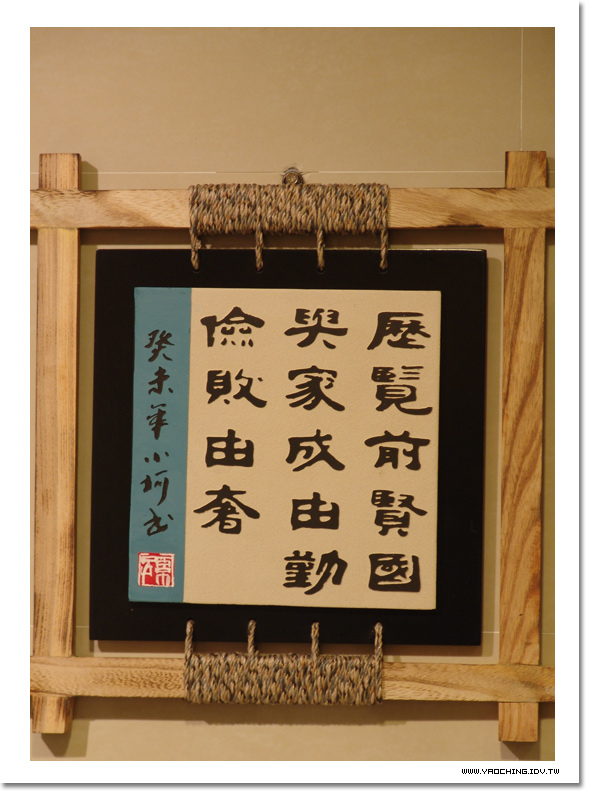 歷覽前賢國
與家成由勤
儉敗由奢
癸未年小珂书
WWW.YAOCHING.IDV.TW